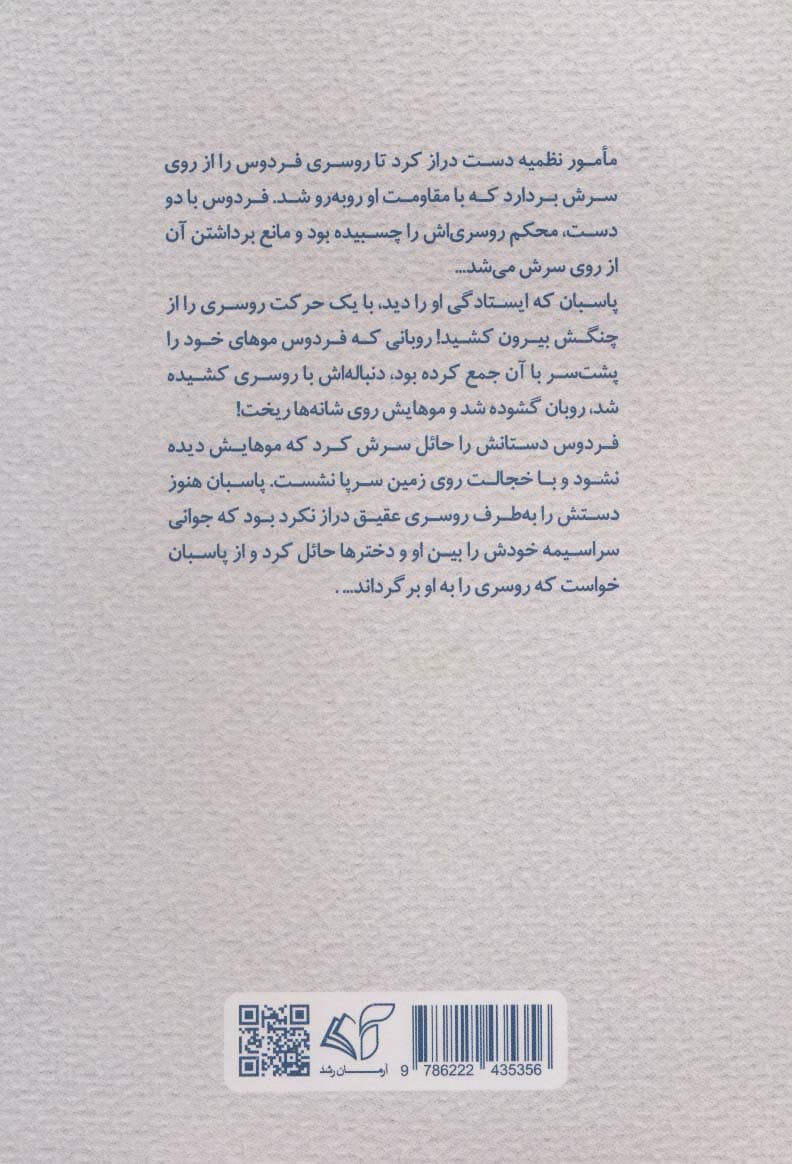 مأمور نظمیه دست دراز کرد تا روسری فردوس را از روی
سرش بردارد که با مقاومت او روبه‌رو شد. فردوس با دو
دست، محکم روسری‌اش را چسبیده بود و مانع برداشتن آن
از روی سرش می‌شد...
پاسبان که ایستادگی او را دید، با یک حرکت روسری را از
چنگش بیرون کشید! روبانی که فردوس موهای خود را
پشت‌سر با آن جمع کرده بود، دنباله‌اش با روسری کشیده
شد، روبان گشوده شد و موهایش روی شانه‌ها ریخت!
فردوس دستانش را حائل سرش کرد که موهایش دیده
نشود و با خجالت روی زمین سرپا نشست. پاسبان هنوز
دستش را به‌طرف روسری عقیق دراز نکرد بود که جوانی
سراسیمه خودش را بین او و دخترها حائل کرد و از پاسبان
خواست که روسری را به او برگرداند... .
آرمان رشد
9 786222 435356